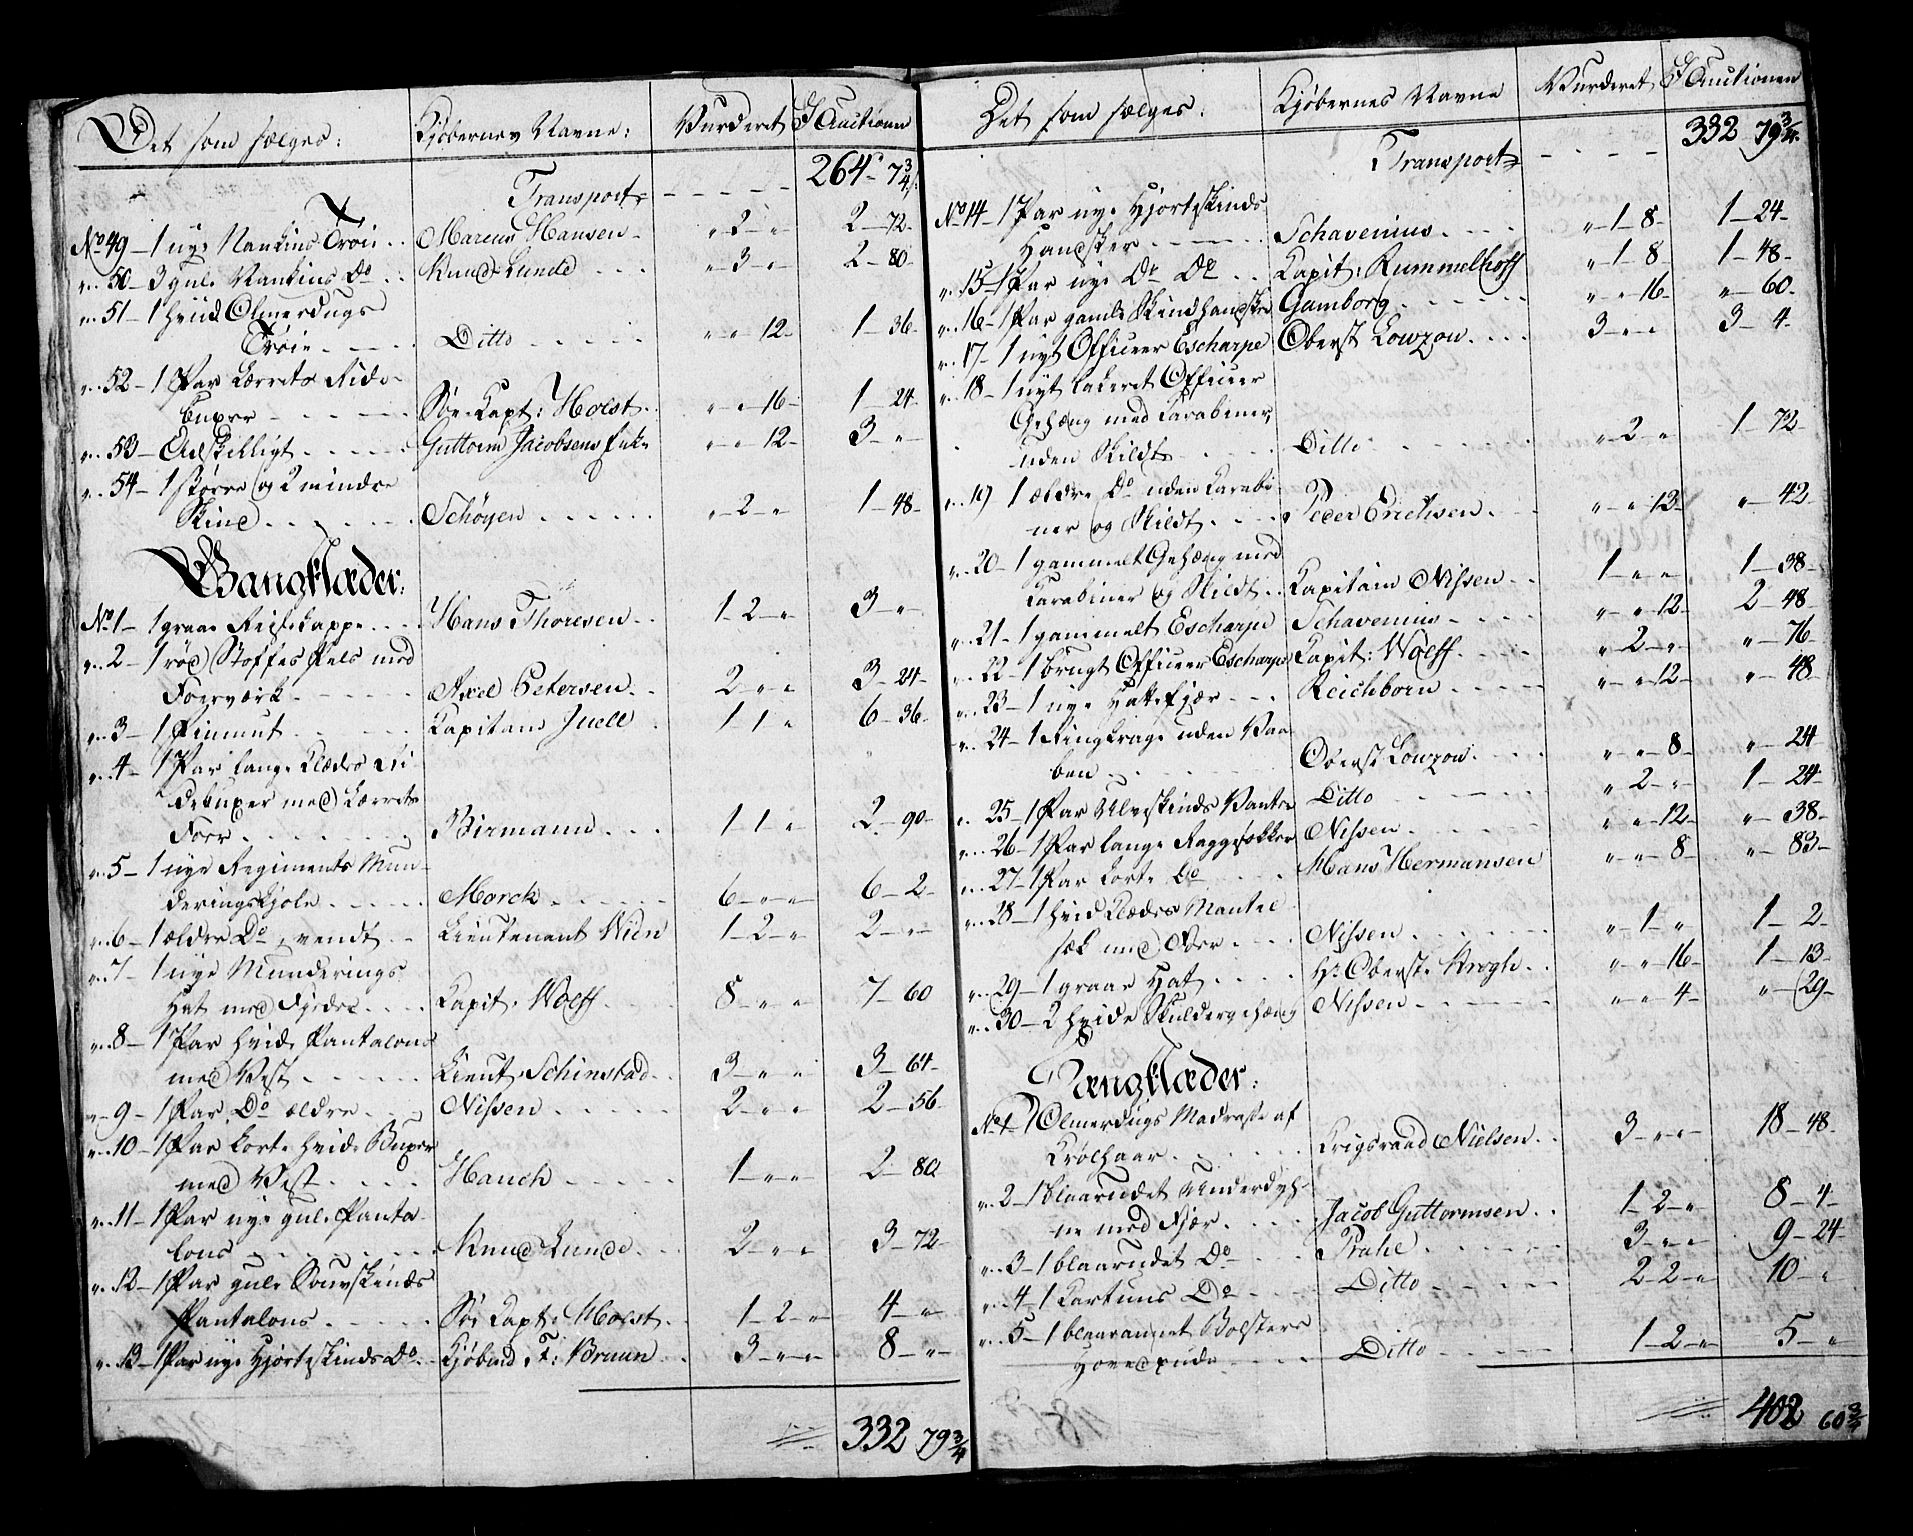 Det som sælges: Kjøbernes Navne: Vurderet I Auctionen
Transport - - - - - 264 - 7 3/4
No 49 - 1 nye Nankins Trøie . . Marcus Hansen - " 2 - " 2 - 72 -
" . 50 - 3 gule Nankins Do . . Knud Lunde . . . " 3 - " 2 - 80 -
" . 51 - 1 hvid Olmerdugs
Trøie . - - . Ditto . . . . . " - " 12 - 1 - 36 -
" . 52 - 1 Par Lærreds Ride-
buxer - - - - - Søe-Kapt: Holst . " - " 16 - 1 - 24 -
" . 53 - Adskilligt . . . . . Guttorm Jacobsens Enke " - " 12 - 3 - "
" . 54 - 1 større og 2 mindre
Skind . . . . . . Schøyen . . . . . . " 2 - " 1 - 48 -
Gangklæder:
No 1 - 1 graae Reisekappe . . . Hans Thoresen . . 1 - 2 - " 3 - "
" . 2 - 1 rød Stoffes Pels med
Foerværk . - - - - Axel Petersen . . 2 - " " 3 - 24 -
" . 3 - 1 Pimmut . . . . . . Kapitain Juell . 1 - 1 " 6 - 36 -
" . 4 - 1 Par lange Klædes Ri-
debuxer med Lærreds
Foer . . . . . . . Birmann . . . 1 - 1 " 2 - 90 -
" . 5 - 1 nye Regiments Mun-
deringskjole . . . . Morck . . . . . . 6 - " " 6 - 2 -
" . 6 - 1 ældre Do, vendt . . Lieutenant Wien 1 - 2 - " 2 - "
" . 7 - 1 nye Munderings
Hat med Fjeder . . . Kapit. Wolff . . . . 8 - " " 7 - 60
" . 8 - 1 Par hvide Pantalons
med Vest . . . . . Lieut. Schinstad . . 3 - " " 3 - 64 -
" . 9 - 1 Par Do ældre . . . Nissen . . . . . . 2 - " " 2 - 56 -
" . 10 - 1 Par korte hvide Buxer
med Vest . . . . . Hauch . . . . . 1 - " " 2 - 80
" . 11 - 1 Par nye gule Panta-
lons . . . . . . . Knud Lunde . . 2 - " " 3 - 72 -
" . 12 - 1 Par gule Souvskinds
Pantalons . . . . . Søe Kapt: Holst . . 1 - 2 - " 4 - "
" . 13 - 1 Par nye Hjorteskinds Do . . Kjøbmd T: Bruun . . 3 - " " 8 - "
332 79 3/4
Det som sælges: Kjøbernes Navne Vurderet I Auctionen
Transport - - - - 332 79 3/4
No 14 - 1 Par nye Hjorteskinds
Handsker . - - - - Schavenius . . . . " 1 - 8 - 1 - 24 -
" . 15 - 1 Par nye Do Do . . Kapit: Rummelhoff " 1 - 8 1 - 48 -
" . 16 - 1 Par gamle Skindhandsker Gamborg . . . . . . " - " 16 - " - 60 -
" . 17 - 1 nyt Officeer Escharpe Oberst Lowzow . . . . 3 - " " 3 - 4 -
" . 18 - 1 nyt lakeret Officeer
Gehæng med Karabiner,
uden Skildt . . . . Ditto . . . . . . " 2 - " 1 - 72
" . 19 1 ældre Do uden Karabi-
ner og Skildt . . . . Peder Erichsen . . " - " 12 - " - 42 -
" . 20 - 1 gammelt Gehæng med
Karabiner og Skildt . . Kapitain Nissen . . 1 - " " 1 - 38 -
" . 21 - 1 gammelt Escharpe Schavenius . . . . " - " 12 - 2 - 48 -
" . 22 - 1 brugt Officeer Escharpe Kapit: Wolff . . . . " 2 - " " - 76 -
" . 23 - 1 nye Hattefjær . . . Reichborn . . . . . " - " 12 - " - 48
" . 24 - 1 Ringkrage uden Vaa-
ben . . . . . . . Oberst Lowzow . . . . " - " 8 - " - 24
" . 25 - 1 Par Ulveskinds Vanter Ditto . . . . . . " 2 - " 1 - 24 -
" . 26 - 1 Par lange Raggsokker Nissen . . . . . . " - " 12 - " - 38 -
" . 27 - 1 Par korte Do . . . . Hans Hermansen " - " 8 - " - 83 -
" . 28 - 1 hvid Klædes Mantel-
sæk med Foer . . . . Nissen . . . . . . " 1 - " 1 - 2 -
" . 29 - 1 graae Hat . . . . Hr. Oberste Krogh . . " - " 16 - 1 - 13 -
" . 30 - 2 hvide Skuldergehæng Nissen . . . . . . " - " 4 - " - 29 -
Sængklæder:
No 1 - 1 Olmerdugs Madrasse af
Krølhaar . . . . . . Krigsraad Nielsen . . 3 - " " 18 - 48 -
" . 2 - 1 blaarudet Underdyh-
ne med Fjær . . . . Jacob Guttormsen . . 1 - 2 - " 8 - 4 -
" . 3 - 1 blaarudet Do . . . Prahe . . . . . . 3 - " " 9 - 24 -
" . 4 - 1 Kartuns Do . . . . Ditto . . . . . . 2 - 2 - " 10 - "
" . 5 - 1 blaarannet Bolsters
Hovedpude . . . . Ditto . . . . . . 1 - 2 - " 5 - "
402 60 3/4